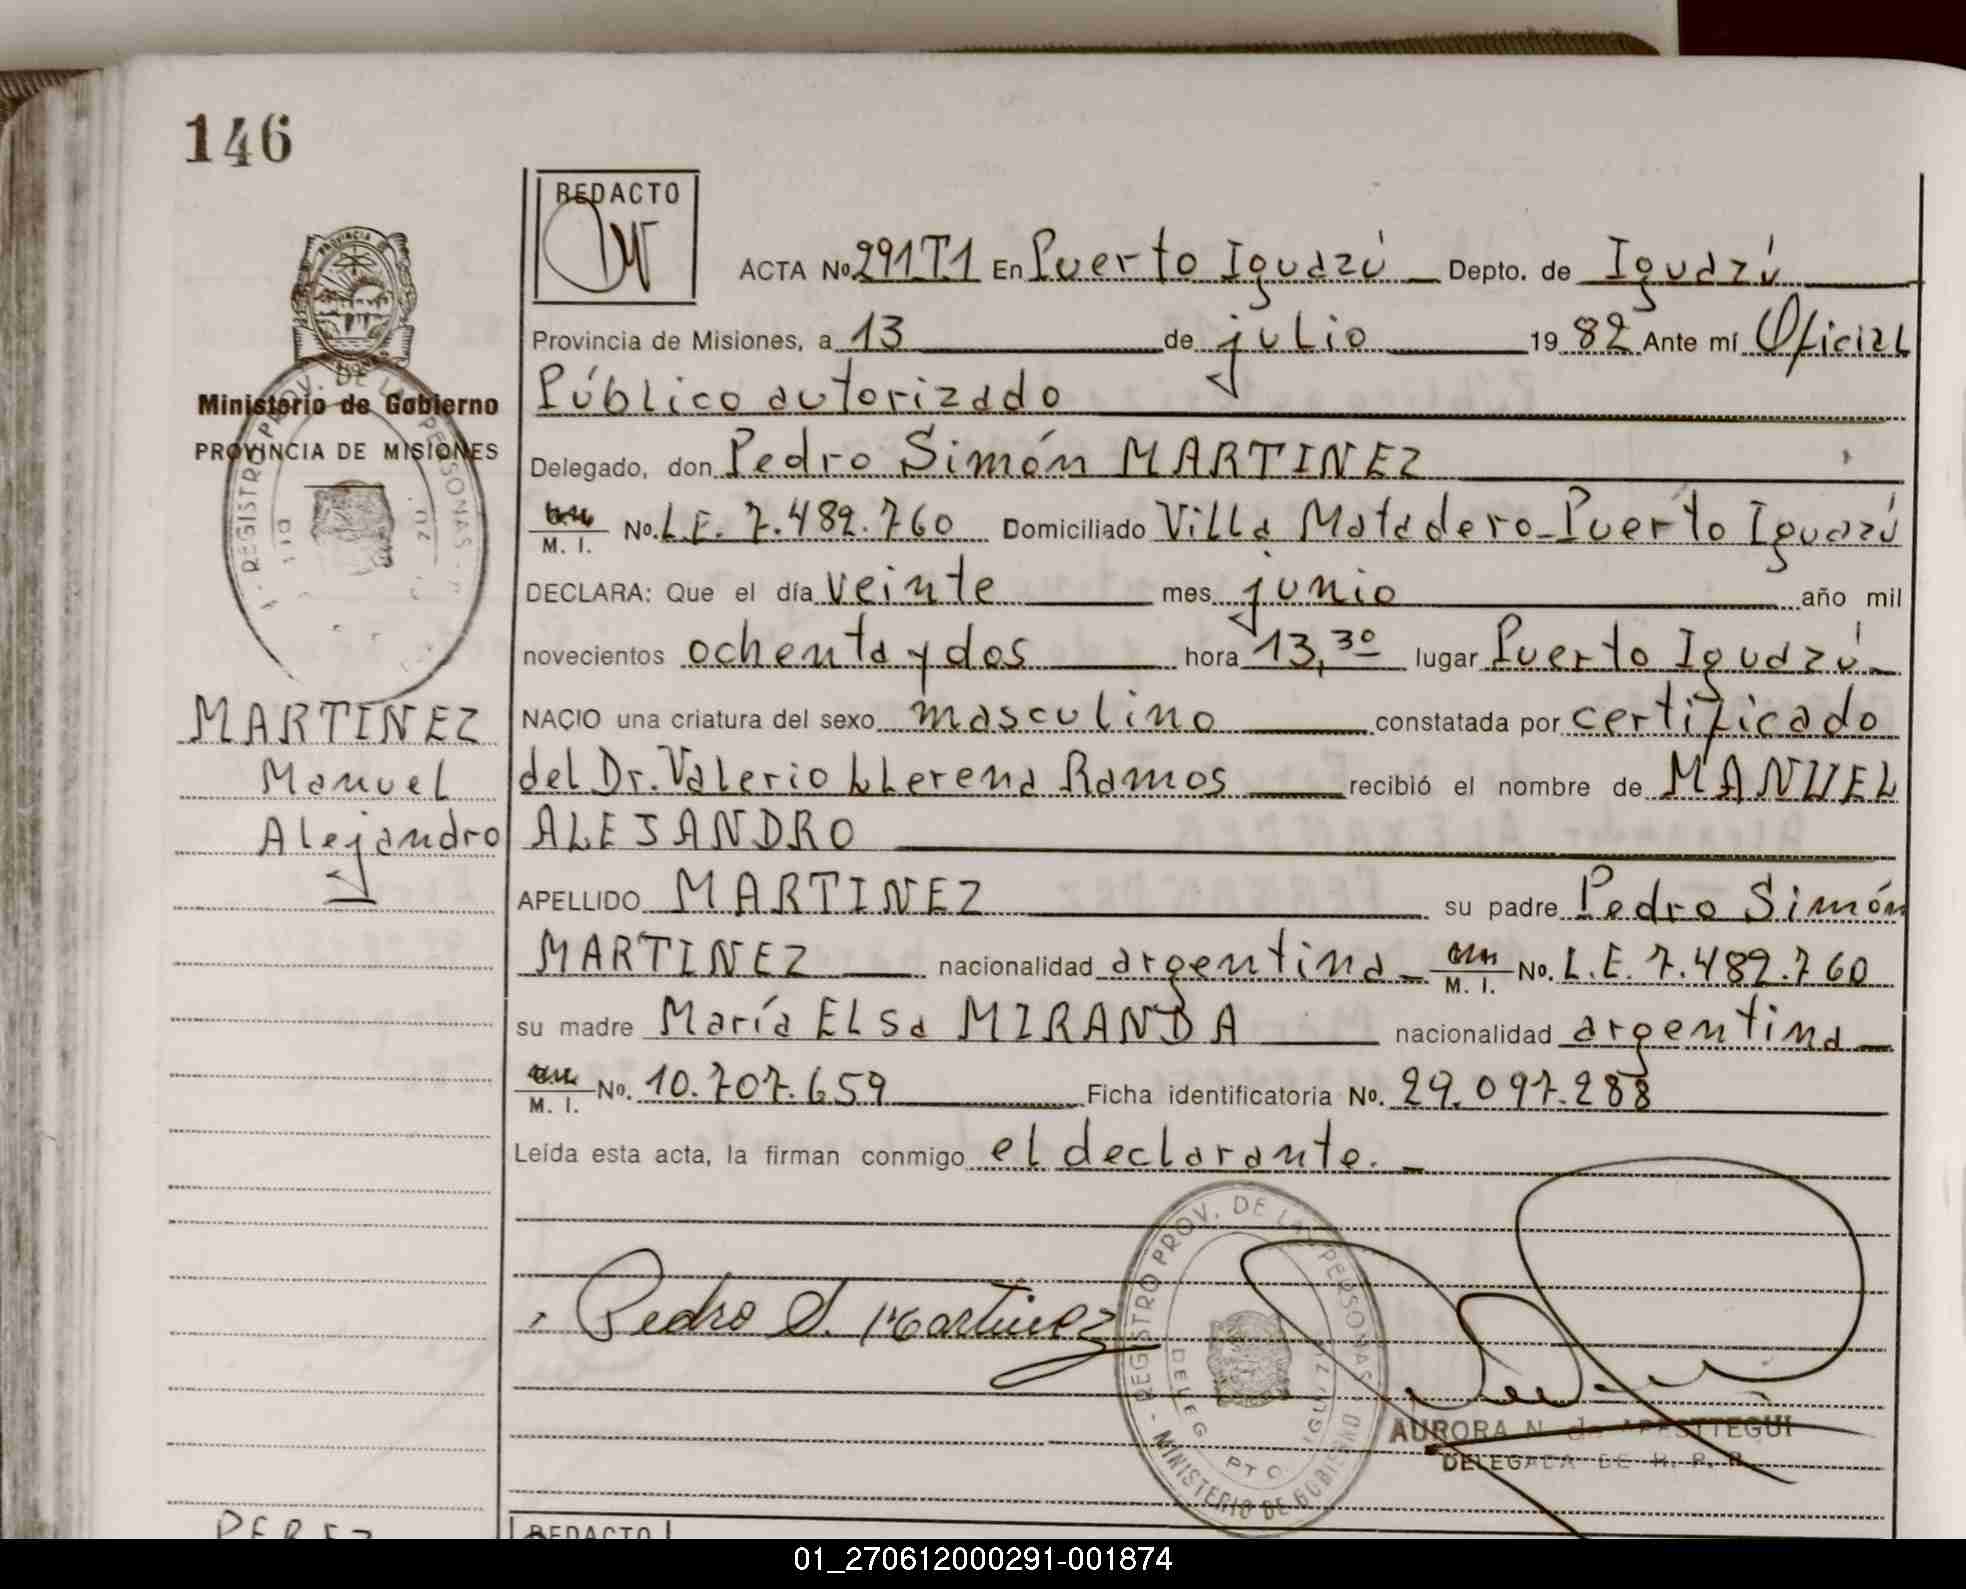 146
REDACTO
ACTA No. 291 T.1 En Puerto Iguazú Depto. de Iguazú
Provincia de Misiones, a 13 de julio 1982 Ante mí Oficial
Público autorizado
Delegado, don Pedro Simón MARTINEZ
M. I. No. L.E. 7.489.760 Domiciliado Villa Matadero-Puerto Iguazú
DECLARA: Que el día veinte mes junio año mil
novecientos ochenta y dos hora 13,30 lugar Puerto Iguazú
NACIO una criatura del sexo masculino constatada por certificado
del Dr. Valerio LLerena Ramos recibió el nombre de MANUEL
ALEJANDRO
APELLIDO MARTINEZ su padre Pedro Simón
MARTINEZ nacionalidad argentina M. I. No. L.E. 7.489.760
su madre María ELsa MIRANDA nacionalidad argentina
M. I. No. 10.707.659 Ficha identificatoria No. 29.097.288
Leída esta acta, la firman conmigo el declarante.
Ministerio de Gobierno
PROVINCIA DE MISIONES
MARTINEZ
Manuel
Alejandro
Pedro S. Martinez
REGISTRO PROV. DE LAS PERSONAS
MINISTERIO DE GOBIERNO
DELEG. PTO. IGUAZU
AURORA N. de APESTTEGUI
DELEGADA DE R. P. P.
PEREZ
REDACTO
01_270612000291-001874